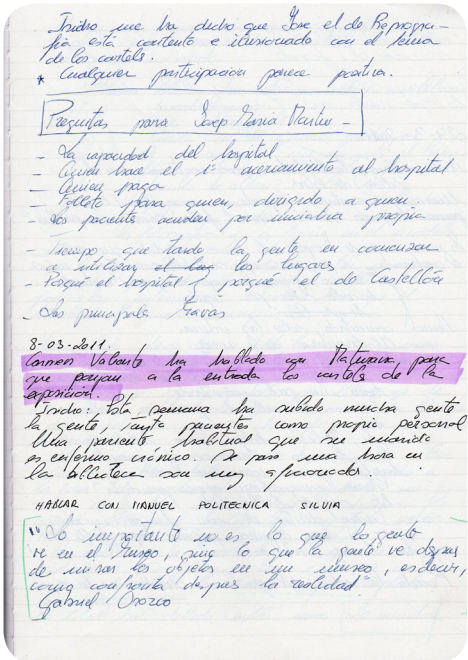 Isidro me ha dicho que Jose el de Reprogra-
fia está contento e ilusionado con el tema
de los cartels.
* Cualquier participacion parece positiva.
Preguntas para Josep Maria Martin -
- La capacidad del hospital
- Quien hace el 1º acercamiento al hospital
- Quien paga
- Folleto para quien, dirigido, a quien.
- Los pacients acuden por iniciativa propia
- Tiempo que tarda la gente en comenzar
a utilizar los lugares
- Porqué el hospital y porqué el de Castellón
- Las principals trabas
8-03-2011.
Carmen Valiente ha hablado con Maturana, para
que pongan a la entrada los cartels de la
exposición.
Isidro: Esta semana ha subido mucha gente
la gente, tanto pacientes como propio personal
Una pariente, habitual que su marido
es enfermo crónico. Se pasa una hora en
la biblioteca son muy aficionados.
HABLAR CON MANUEL POLITECNICA SILVIA
"Lo importante no es lo que la gente
ve en el Museo, sino lo que la gente ve depues
de mirar los objetos en un museo, es decir,
como confronta depues la realidad"
Gabriel Orozco